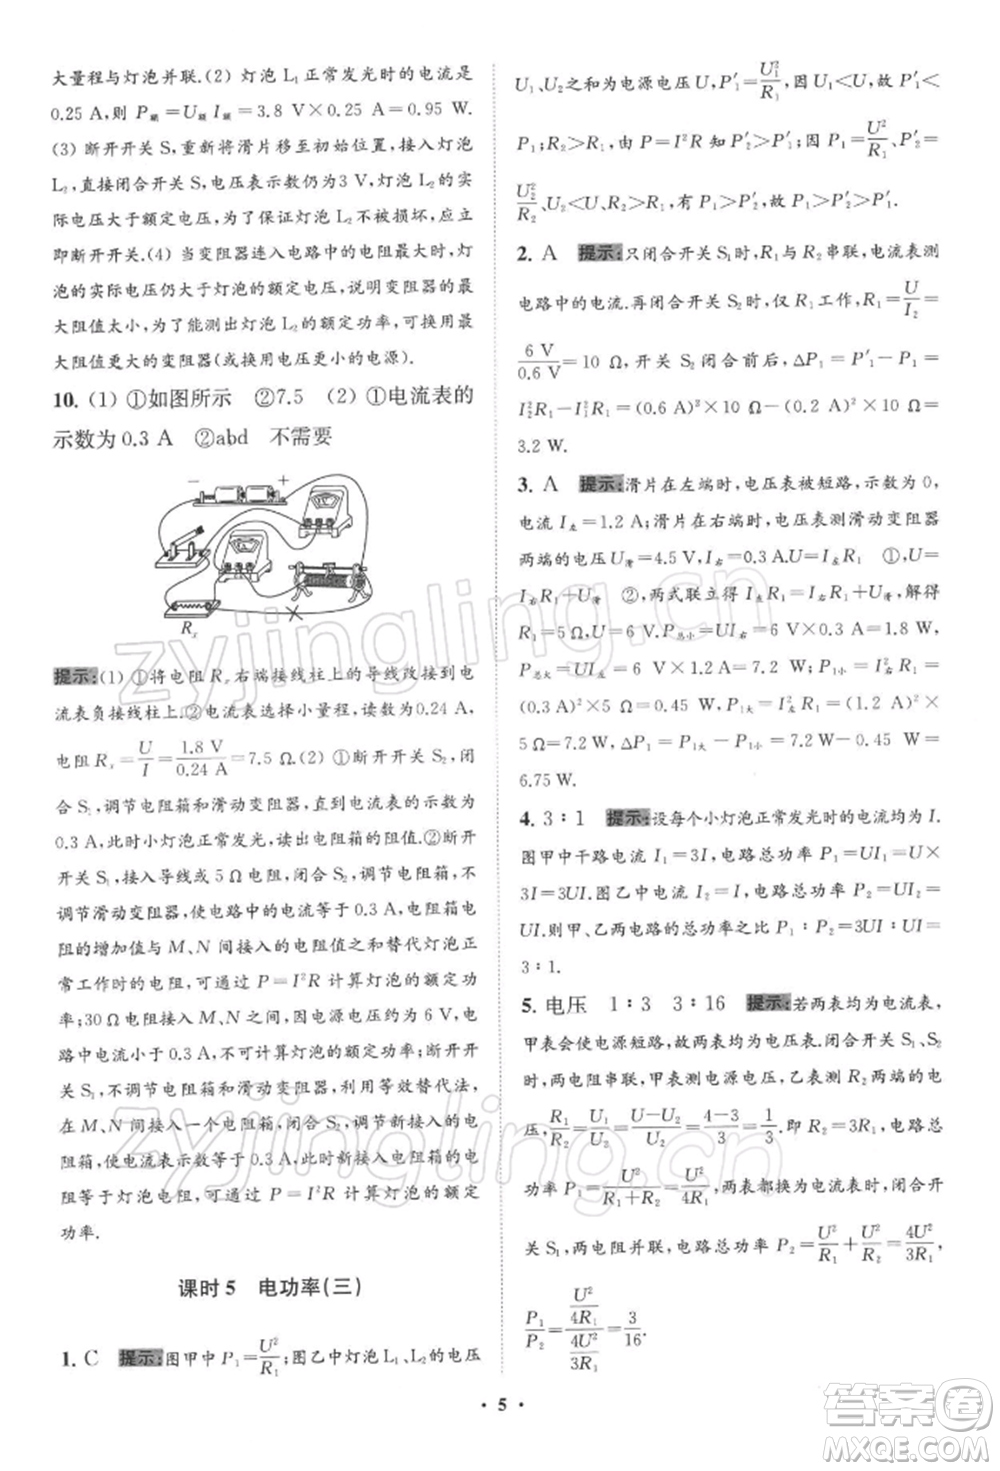 大量程与灯泡并联.(2) 灯泡 L₁ 正常发光时的电流是
0.25 A,则 P额=U额 I额=3.8 V×0.25 A=0.95 W.
(3) 断开开关 S,重新将滑片移至初始位置,接入灯泡
L₂,直接闭合开关 S,电压表示数仍为3 V,灯泡 L₂的实
际电压大于额定电压,为了保证灯泡 L₂ 不被损坏,应立
即断开开关.(4) 当变阻器连入电路中的电阻最大时,灯
泡的实际电压仍大于灯泡的额定电压,说明变阻器的最
大阻值太小,为了能测出灯泡 L₂ 的额定功率,可换用最
大阻值更大的变阻器(或换用电压更小的电源).
10. (1) ①如图所示 ②7.5 (2) ①电流表的
示数为0.3 A ②abd 不需要
− +
Rₓ
提示:(1) ①将电阻 Rₓ 右端接线柱上的导线改接到电
流表负接线柱上.②电流表选择小量程,读数为0.24 A,
电阻 Rₓ=U/I=1.8 V/0.24 A=7.5 Ω.(2) ①断开开关 S₂,闭
合 S₁,调节电阻箱和滑动变阻器,直到电流表的示数为
0.3 A,此时小灯泡正常发光,读出电阻箱的阻值.②断开
开关S₁,接入导线或5 Ω电阻,闭合开关S₁,不调节电阻箱,
不调节滑动变阻器,使电路中的电流等于0.3 A,电阻箱电
阻的增加值与 M、N 间接入的电阻值之和替代灯泡正
常工作时的电阻,可通过 P=I²R 计算灯泡的额定功
率;30 Ω电阻接入 M、N 之间,总电压大约为6 V,电
路中电流小于0.3 A,不可计算灯泡的额定功率.(3) 闭合
开关 S₁,不调节电阻箱和滑动变阻器,利用替代法,
在 M、N 之间接入新的电阻箱,只需要调节新接入的电
阻箱,使电流表示数等于0.3 A,此时新接入电阻箱的电
阻等于灯泡电阻,可通过 P=I²R 计算灯泡的额定
功率.
课时 5 电功率(三)
1. C 提示:图甲中 P₁=U²/R₁;图乙中灯泡L₁、L₂的电压
U₁、U₂之和为电源电压 U,P′₁=U₁²/R₁.因为 U₁<U,故 P′₁<
P₁;R₂>R₁,由 P=I²R 知 P′₂>P′₁;因 P₁=U²/R₁、P′₂=
U₂²/R₂、U₂<U、R₂>R₁,有 P₁>P′₂,故 P₁>P′₂>P′₁.
2. A 提示:只闭合开关 S₁时,R₁与 R₂串联,电流表测
电路中的电流.再闭合开关 S₂,仅 R₁工作,R₁=U/I₂=
6 V/0.6 A=10 Ω,开关 S₂ 闭合前后,ΔP₁=P′₁−P₁=
I₂²R₁−I₁²R₁=(0.6 A)²×10 Ω−(0.2 A)²×10 Ω=
3.2 W.
3. A 提示:滑片在左端时,电压表被短路,示数为 0,
电流 I左=1.2 A;滑片在右端时,电压表测滑动变阻器
两端的电压U滑=4.5 V,I右=0.3 A.U=I左R₁ ①,U=
I右R₁+U滑 ②,两式联立得 I左R₁=I右R₁+U滑,解得
R₁=5 Ω,U=6 V.P总小=UI右=6 V×0.3 A=1.8 W,
P总大=UI左=6 V×1.2 A=7.2 W.P₁小=I右²R₁=
(0.3 A)²×5 Ω=0.45 W,P₁大=I左²R₁=(1.2 A)²×
5 Ω=7.2 W,ΔP₁=P₁大−P₁小=7.2 W−0.45 W=
6.75 W.
4. 3∶1 提示:设每个小灯泡正常发光时的电流均为 I.
图甲中干路电流 I₁=3I,电路总功率 P₁=UI₁=U×
3I=3UI;图乙中电流 I₂=I,电路总功率 P₂=UI₂=
UI.则甲、乙两电路的总功率之比 P₁∶P₂=3UI∶UI=
3∶1.
5. 电压 1∶3 3∶16 提示:若两表均为电流表,
甲表会使电源短路,故两表均为电压表.闭合开关 S₁、S₂
时,两电阻串联,甲表测电源电压,乙表测 R₂ 两端的电
压,R₁/R₂=U₁/U₂=(U−U₂)/U₂=(4−3)/3=1/3.即 R₂=3R₁,电路总
功率 P₁=U²/(R₁+R₂)=U²/4R₁,两表都换为电流表时,闭合开
关 S₁,两电阻并联,电路总功率 P₂=U²/R₁+U²/R₂=4U²/3R₁,
P₁/P₂=(U²/4R₁)/(4U²/3R₁)=3/16.
• 5 •
zyjingling.cn
zyjingling.cn
答案圈
MXQE.COM